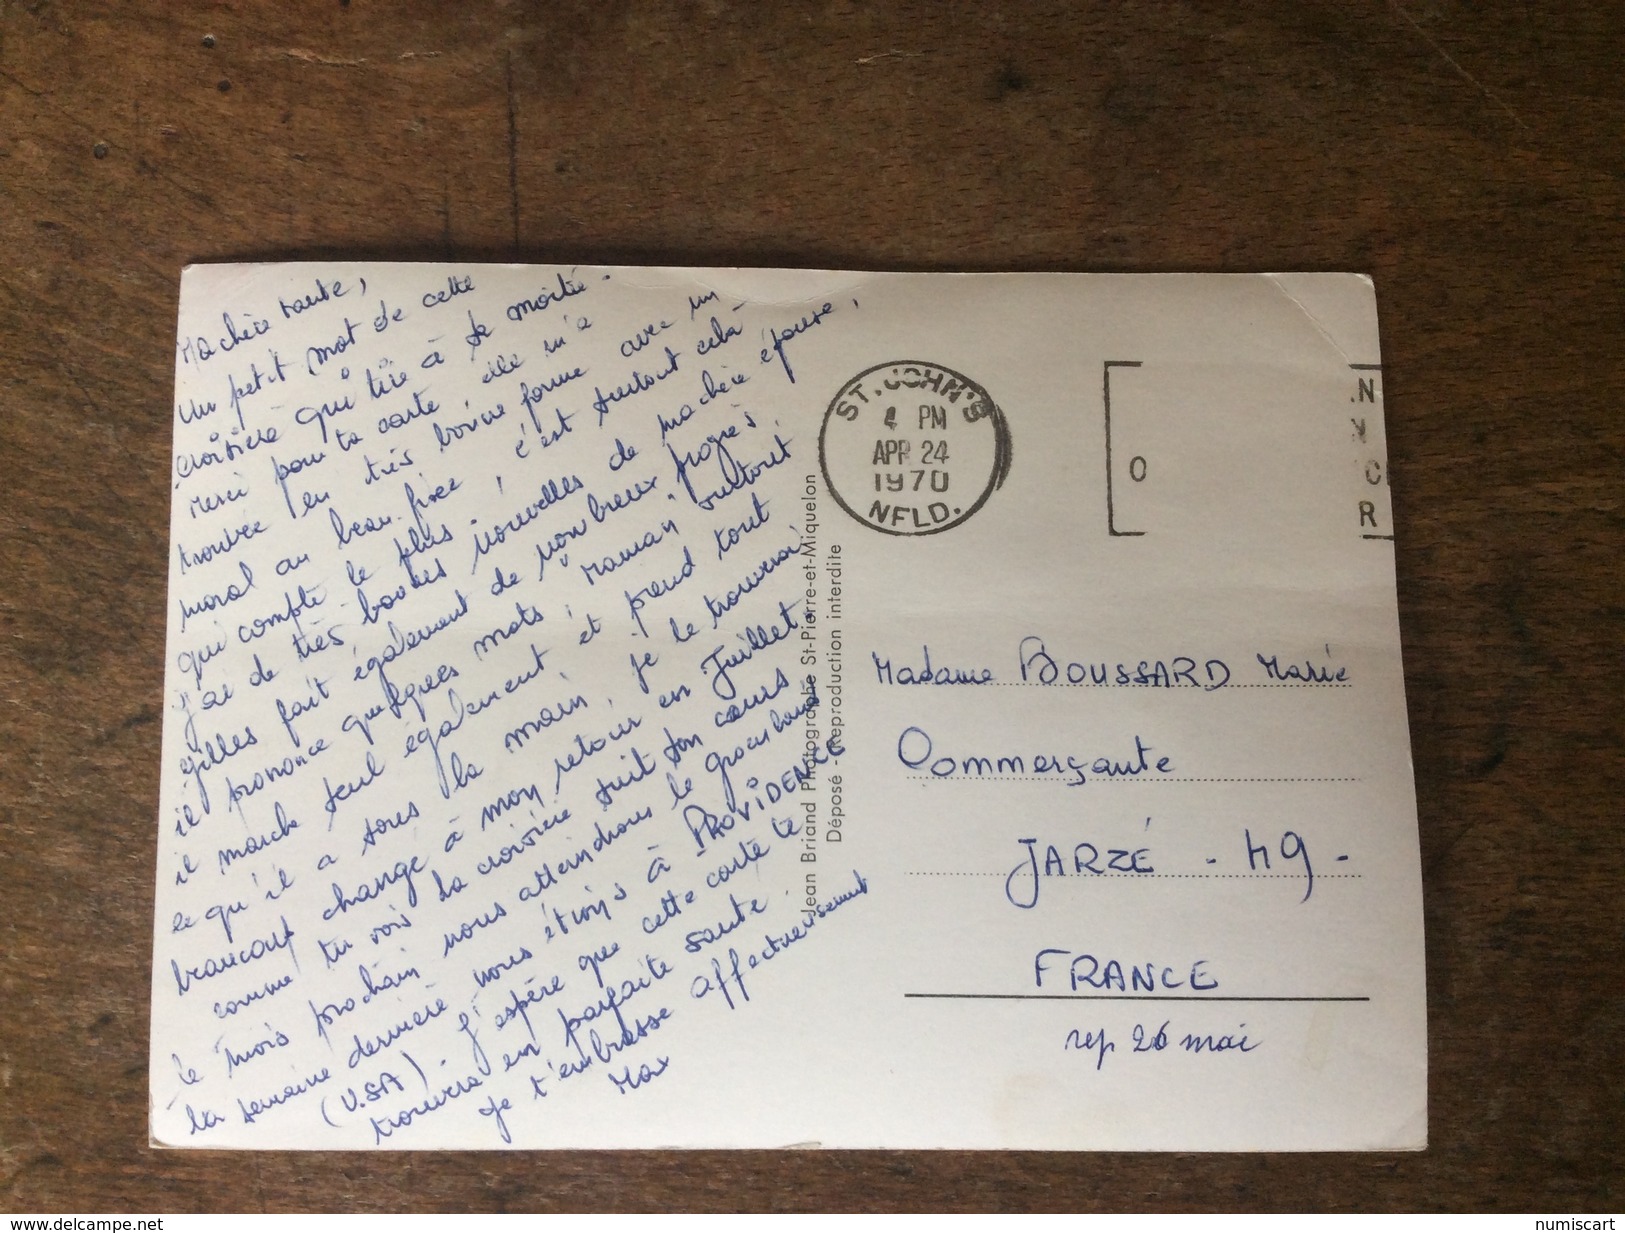 Ma chère tante,
Un petit mot de cette
croisière qui tire à sa moitié.
Merci pour ta carte, elle m'a
trouvée en très bonne forme avec un
moral au beau fixe, c'est surtout cela
qui compte le plus.
j'ai de très bonnes nouvelles de ma chère épouse,
gilles fait également de nombreux progrès
il prononce quelques mots, "Maman" surtout,
il marche seul également et prend tout
ce qu'il a sous la main, je le trouverai
beaucoup changé à mon retour en Juillet.
comme tu vois la croisière suit son cours
le mois prochain nous atteindrons le groenland
la semaine dernière nous étions à PROVIDENCE
(U.SA). J'espère que cette carte te
trouvera en parfaite santé.
Je t'embrasse affectueusement
Max
Jean Briand Photographe St-Pierre-et-Miquelon
Déposé - Reproduction interdite
ST. JOHN'S
4 PM
APR 24
1970
NFLD.
O
N
R
Madame BOUSSARD Marie
Commerçante
JARZÉ - 49 -
FRANCE
rep 26 mai
www.delcampe.net
numiscart